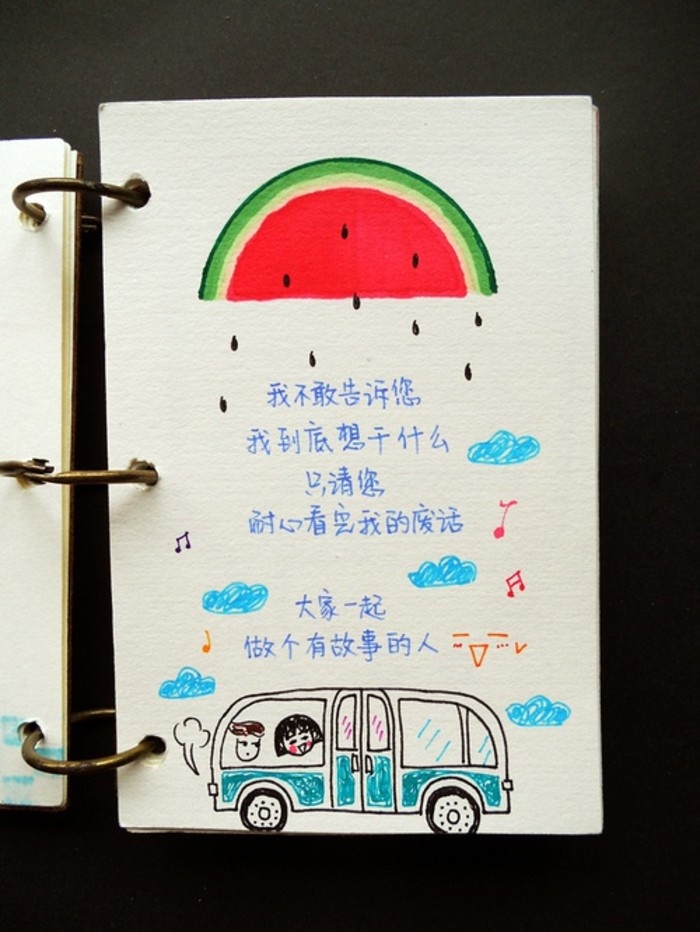 我不敢告诉您
我到底想干什么
只请您
耐心看完我的废话
大家一起
做个有故事的人